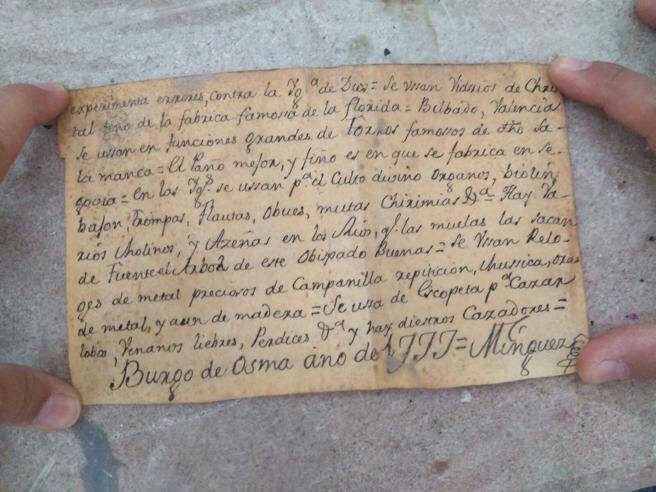 experimenta errores, contra la Yg.ª de Dios = Se vsan Vidrios de Chris
tal fino de la fabrica famosa de la florida = Bilbado, Valencia
se ussan en funciones grandes de Toros famossos de dho Sa-
lamanca = El Paño mejor, y fino es en que se fabrica en Se-
govia = en las Yg.ˢ se ussan p.ª el Culto divino Organos, biolin,
bajon, Trompas, Flautas, Obues, Chirimias &ª = Hay Va-
rios Molinos, y Azeñas en los Rios, q.ᵉ las muelas las sacan
de Fuente el Arbol de este Obispado Buenas = Se Vsan Relo-
ges de metal preciosos de Campanilla repiticion, Mussica, oxas
de metal, y aun de madera = Se usa de Escopeta p.ª Cazar
lobos, Venaos liebres, Perdices &ª y hay diestros Cazadores =
Burgo de Osma año de 1777 = Minguez